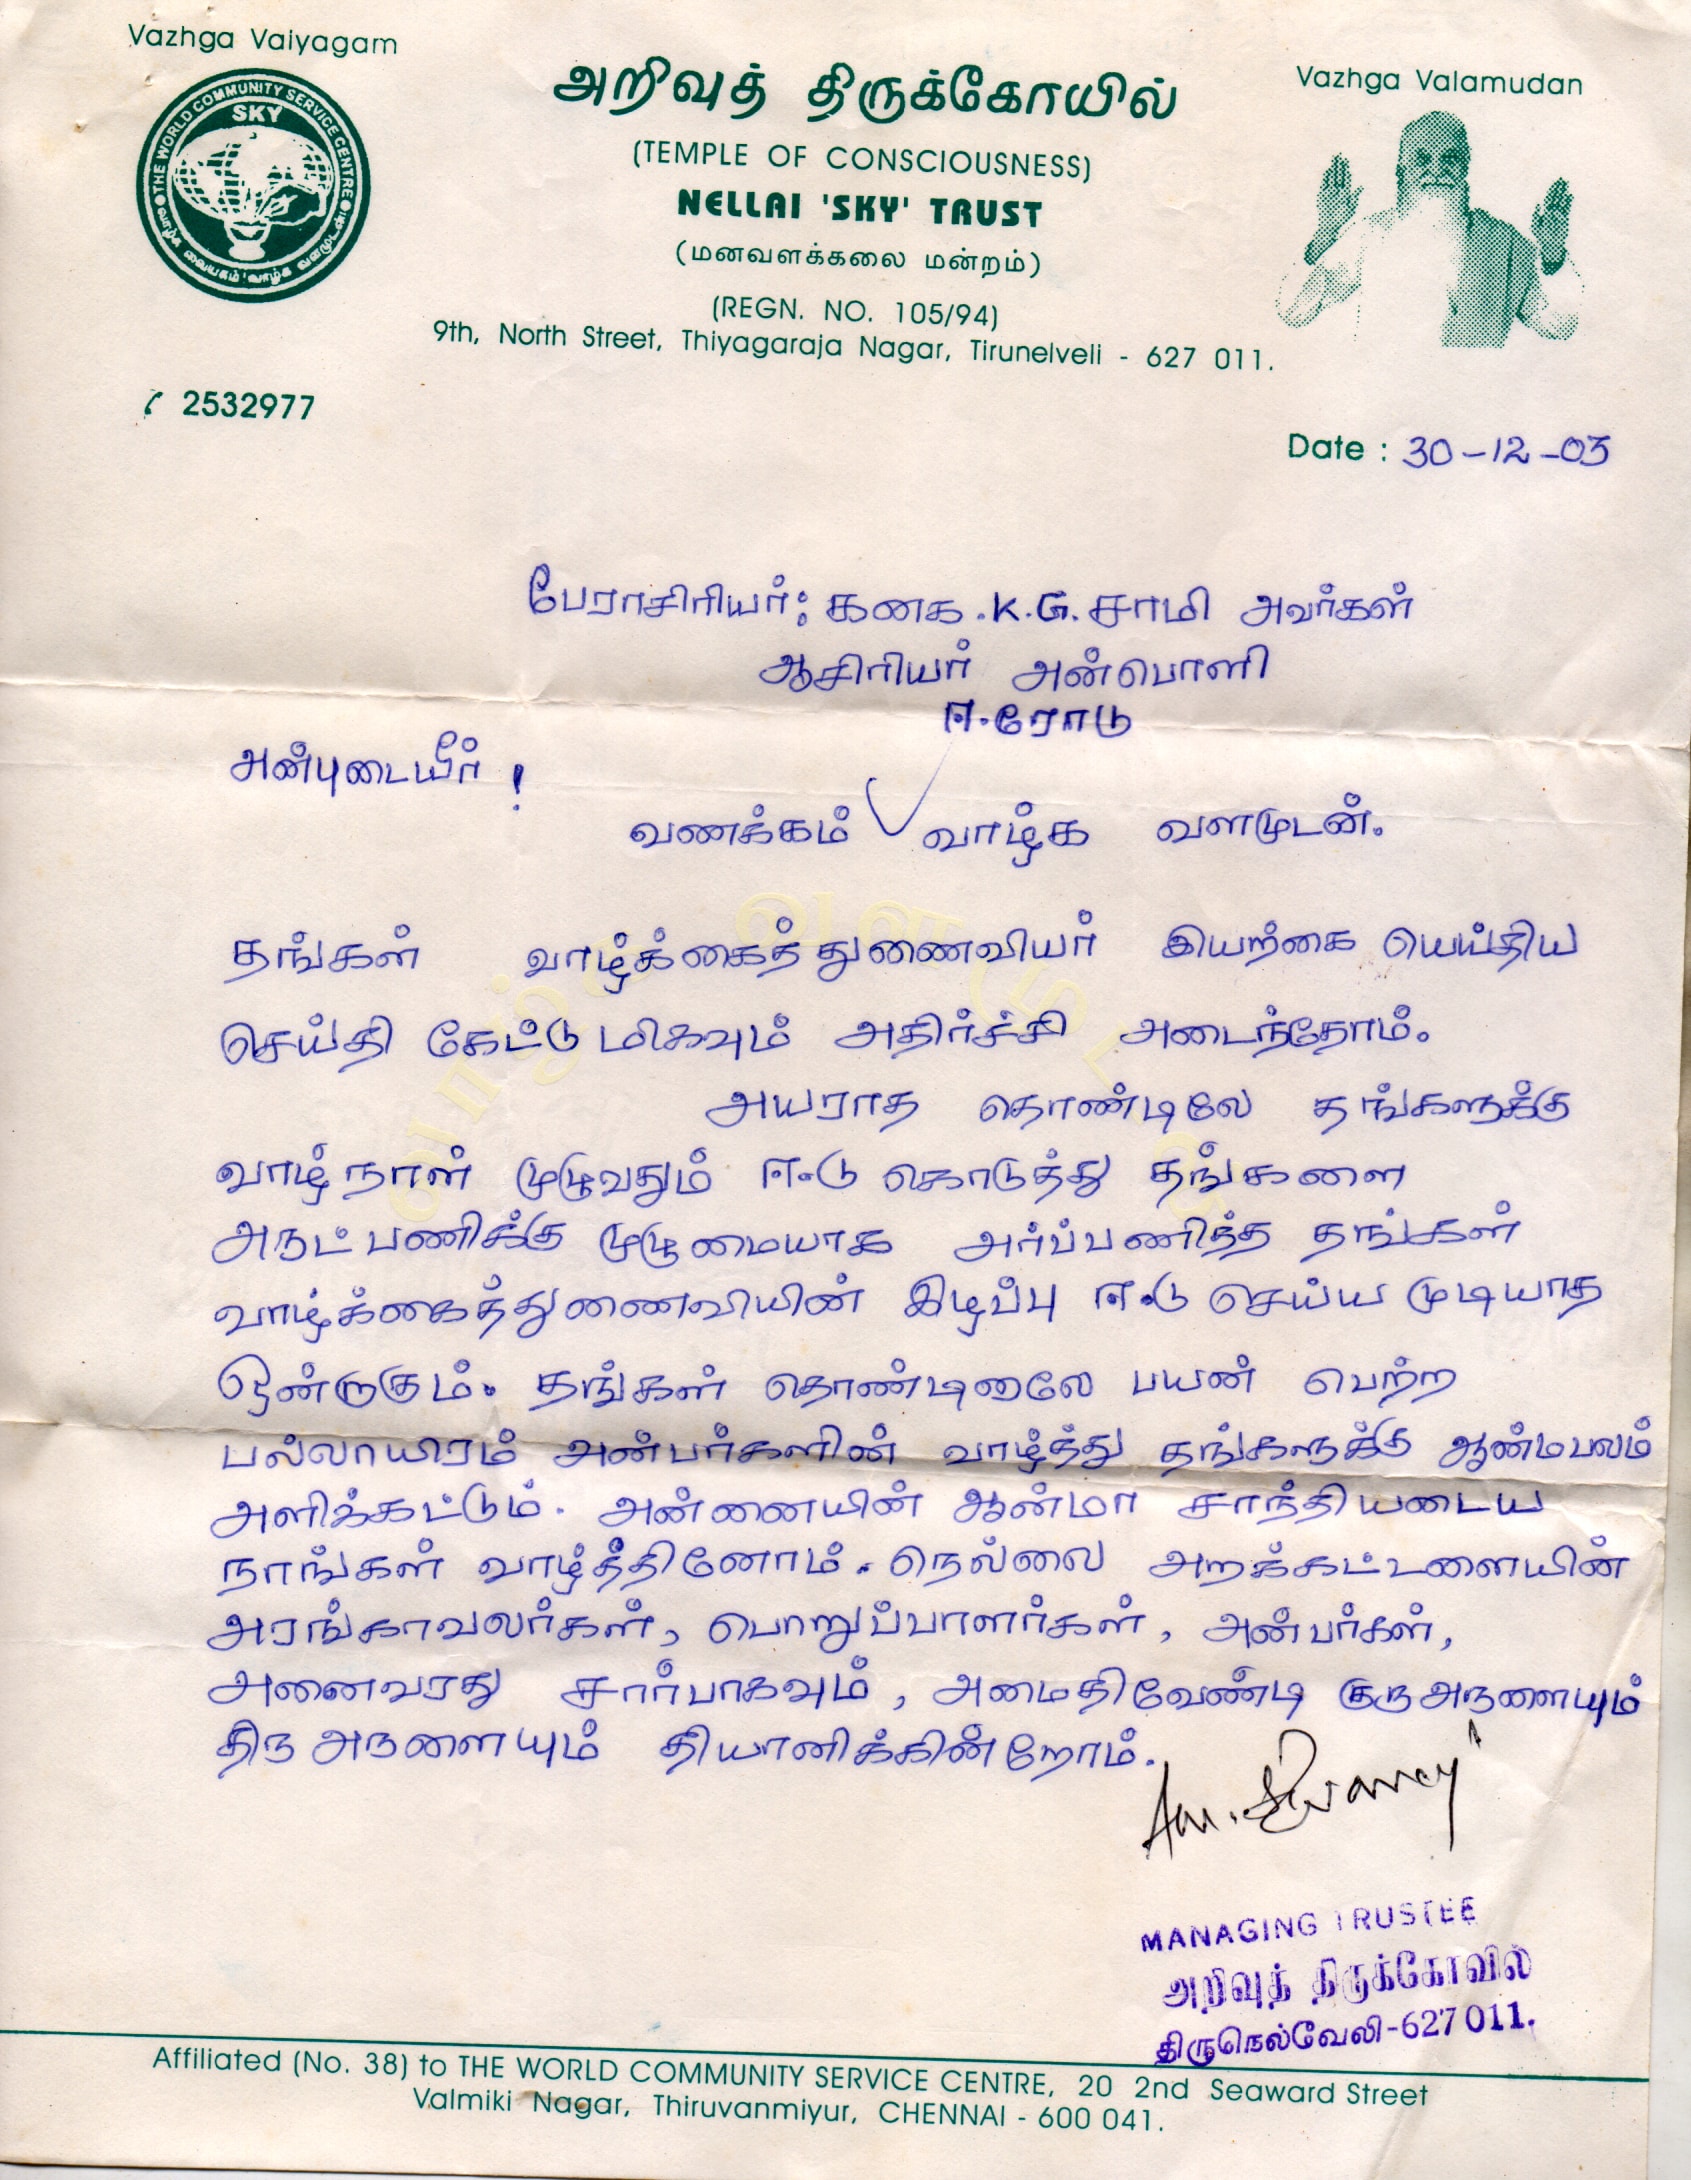 Vazhga Vaiyagam
அறிவுத் திருக்கோயில்
Vazhga Valamudan
THE WORLD COMMUNITY SERVICE CENTRE
SKY
வாழ்க வையகம் வாழ்க வளமுடன்
(TEMPLE OF CONSCIOUSNESS)
NELLAI 'SKY' TRUST
(மனவளக்கலை மன்றம்)
(REGN. NO. 105/94)
9th, North Street, Thiyagaraja Nagar, Tirunelveli - 627 011.
2532977
Date : 30-12-03
பேராசிரியர்: கனக .K.G.சாமி அவர்கள்
ஆசிரியர் அன்பொளி
ஈ.ரோடு
அன்புடையீர் !
வணக்கம் வாழ்க வளமுடன்.
வாழ்க வளமுடன்
தங்கள் வாழ்க்கைத்துணைவியர் இயற்கை யெய்திய
செய்தி கேட்டு மிகவும் அதிர்ச்சி அடைந்தோம்.
அயராத தொண்டிலே தங்களுக்கு
வாழ்நாள் முழுவதும் ஈடு கொடுத்து தங்களை
அருட்பணிக்கு முழுமையாக அர்ப்பணித்த தங்கள்
வாழ்க்கைத்துணைவியின் இழப்பு ஈடு செய்ய முடியாத
ஒன்றாகும். தங்கள் தொண்டினாலே பயன் பெற்ற
பல்லாயிரம் அன்பர்களின் வாழ்த்து தங்களுக்கு ஆன்மபலம்
அளிக்கட்டும். அன்னையின் ஆன்மா சாந்தியடைய
நாங்கள் வாழ்த்தினோம். நெல்லை அறக்கட்டளையின்
அரங்காவலர்கள், பொறுப்பாளர்கள், அன்பர்கள்,
அனைவரது சார்பாகவும், அமைதிவேண்டி குருஅருளையும்
திருஅருளையும் தியானிக்கின்றோம்.
MANAGING TRUSTEE
அறிவுத் திருக்கோவில்
திருநெல்வேலி-627 011.
Affiliated (No. 38) to THE WORLD COMMUNITY SERVICE CENTRE, 20 2nd Seaward Street
Valmiki Nagar, Thiruvanmiyur, CHENNAI - 600 041.